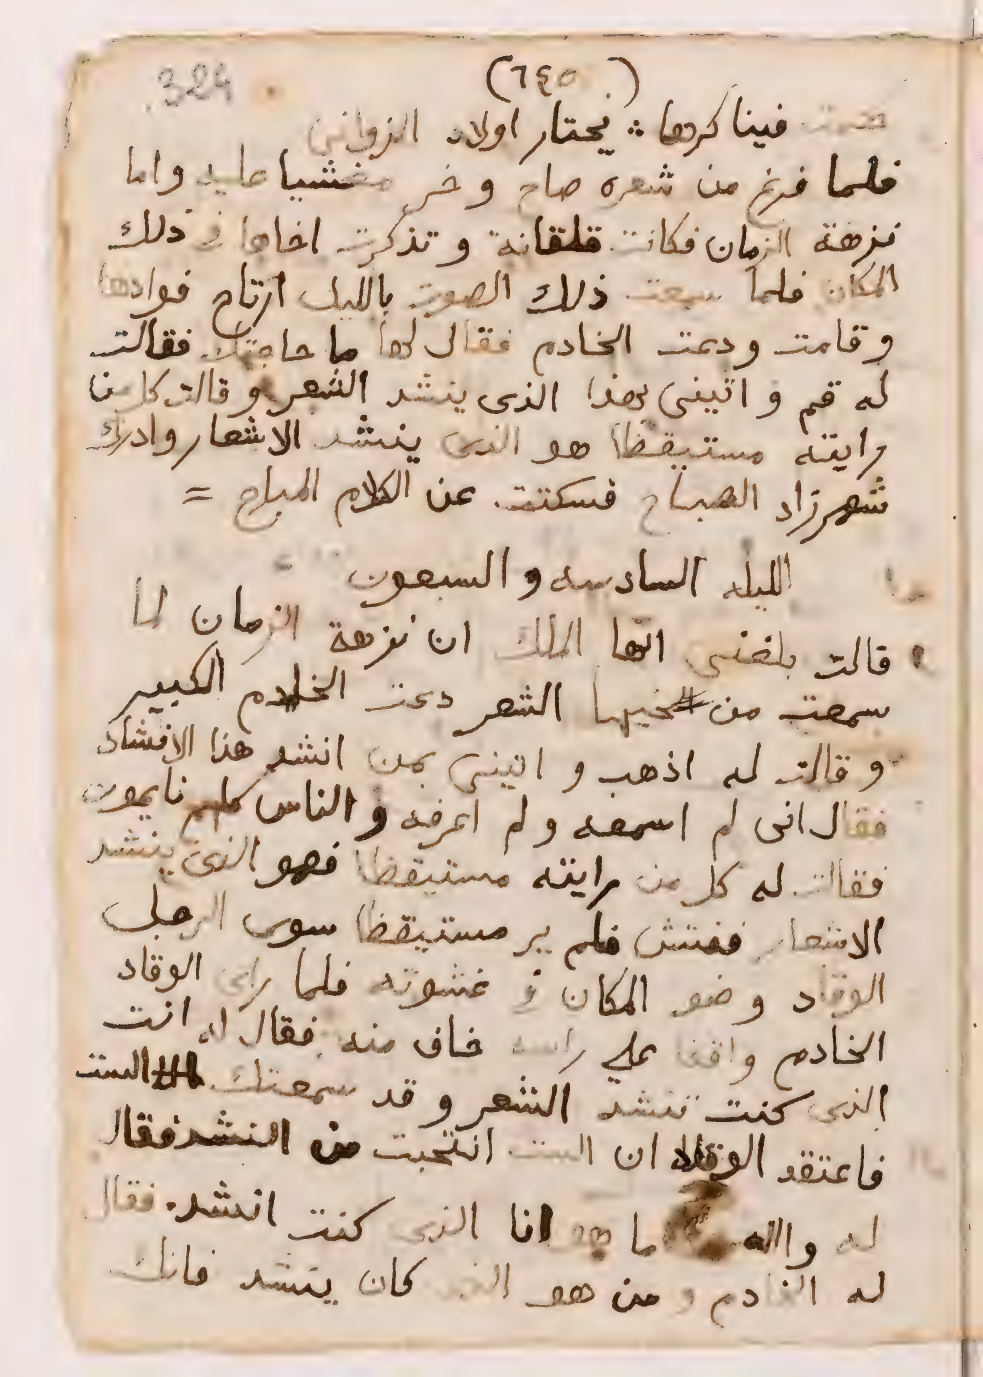 324
(٦٤٥)
فينا كرها ❊ يحتار اولاد الزواني
فلما فرغ من شعره صاح وخر مغشيا عليه واما
نزهة الزمان فكانت قلقانة وتذكرت اخاها في ذلك
المكان فلما سمعت ذلك الصوت بالليل ارتاح فوادها
وقامت ودعت الخادم فقال لها ما حاجتك فقالت
له قم واتيني بهذا الذى ينشد الشعر وقالت كل من
رايته مستيقظا هو الذى ينشد الاشعار وادرك
شهرزاد الصباح فسكتت عن الكلام المباح =
الليله السادسه والسبعون
قالت بلغنى ايها الملك ان نزهة الزمان لما
سمعت من اخيها الشعر دعت الخادم الكبير
وقالت له اذهب واتينى بمن انشد هذا الانشاد
فقال انى لم اسمعه ولم اعرفه والناس كلهم نايمون
فقالت له كل من رايته مستيقظا فهو الذى ينشد
الاشعار ففتش فلم ير مستيقظا سوى الرجل
الوقاد وضو المكان في غشوته فلما راى الوقاد
الخادم واقفا على راسه خاف منه فقال له انت
الذى كنت تنشد الشعر وقد سمعتك الست
فاعتقد الوقاد ان الست انتحبت من النشد فقال
له والله ما هو انا الذى كنت انشد. فقال
له الخادم ومن هو الذى كان ينشد فانك